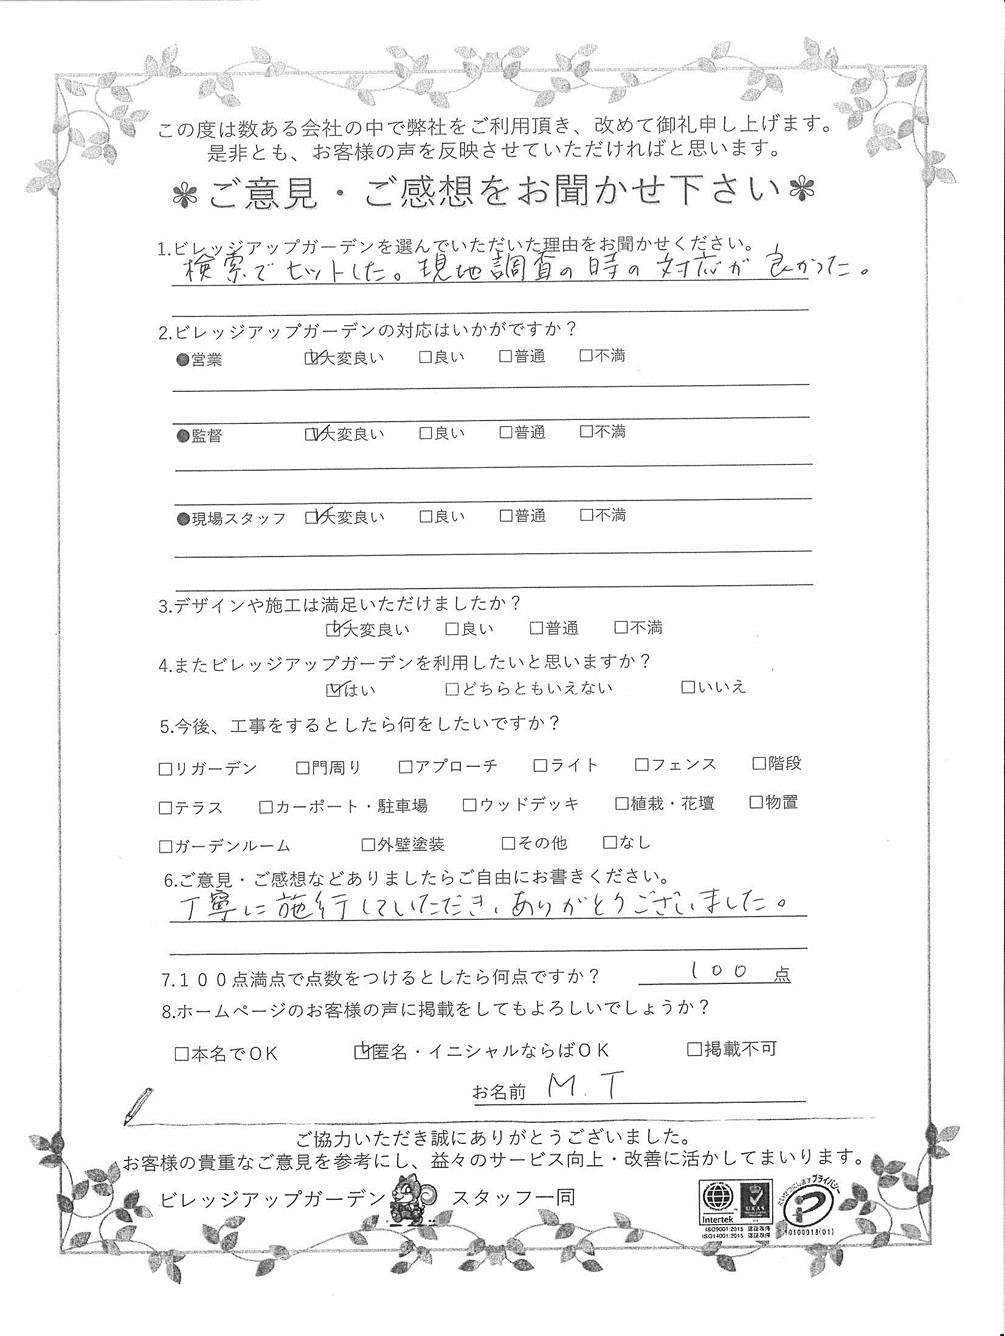 この度は数ある会社の中で弊社をご利用頂き、改めて御礼申し上げます。
是非とも、お客様の声を反映させていただければと思います。
ご意見・ご感想をお聞かせ下さい
1.ビレッジアップガーデンを選んでいただいた理由をお聞かせください。
検索でヒットした。現地調査の時の対応が良かった。
2.ビレッジアップガーデンの対応はいかがですか？
●営業 ☑大変良い □良い □普通 □不満
●監督 ☑大変良い □良い □普通 □不満
●現場スタッフ ☑大変良い □良い □普通 □不満
3.デザインや施工は満足いただけましたか？
☑大変良い □良い □普通 □不満
4.またビレッジアップガーデンを利用したいと思いますか？
☑はい □どちらともいえない □いいえ
5.今後、工事をするとしたら何をしたいですか？
□リガーデン □門周り □アプローチ □ライト □フェンス □階段
□テラス □カーポート・駐車場 □ウッドデッキ □植栽・花壇 □物置
□ガーデンルーム □外壁塗装 □その他 □なし
6.ご意見・ご感想などありましたらご自由にお書きください。
丁寧に施行していただき、ありがとうございました。
7.１００点満点で点数をつけるとしたら何点ですか？ 100 点
8.ホームページのお客様の声に掲載をしてもよろしいでしょうか？
□本名でＯＫ ☑匿名・イニシャルならばＯＫ □掲載不可
お名前 M.T
ご協力いただき誠にありがとうございました。
お客様の貴重なご意見を参考にし、益々のサービス向上・改善に活かしてまいります。
ビレッジアップガーデン スタッフ一同
Intertek
UKAS
ISO9001:2015 認証取得
ISO14001:2015 認証取得
プライバシー